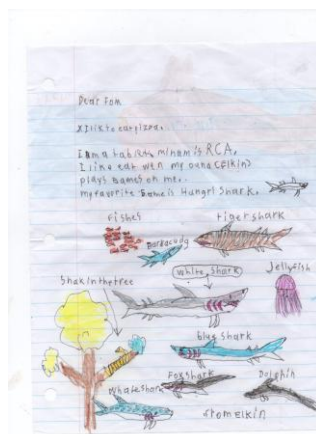 Dear Fam
I like to eat pizza.
I am a tablet minam is RCA.
I like eat wen my oune (Elkin)
plays games on me..
my favorite Game is Hungri Shark.
Fishes
tiger shark
Barracudy
white shark
Jellyfish
Snak in the tree
blue shark
Fox shark
Dolphin
Whale shark
From Elkin